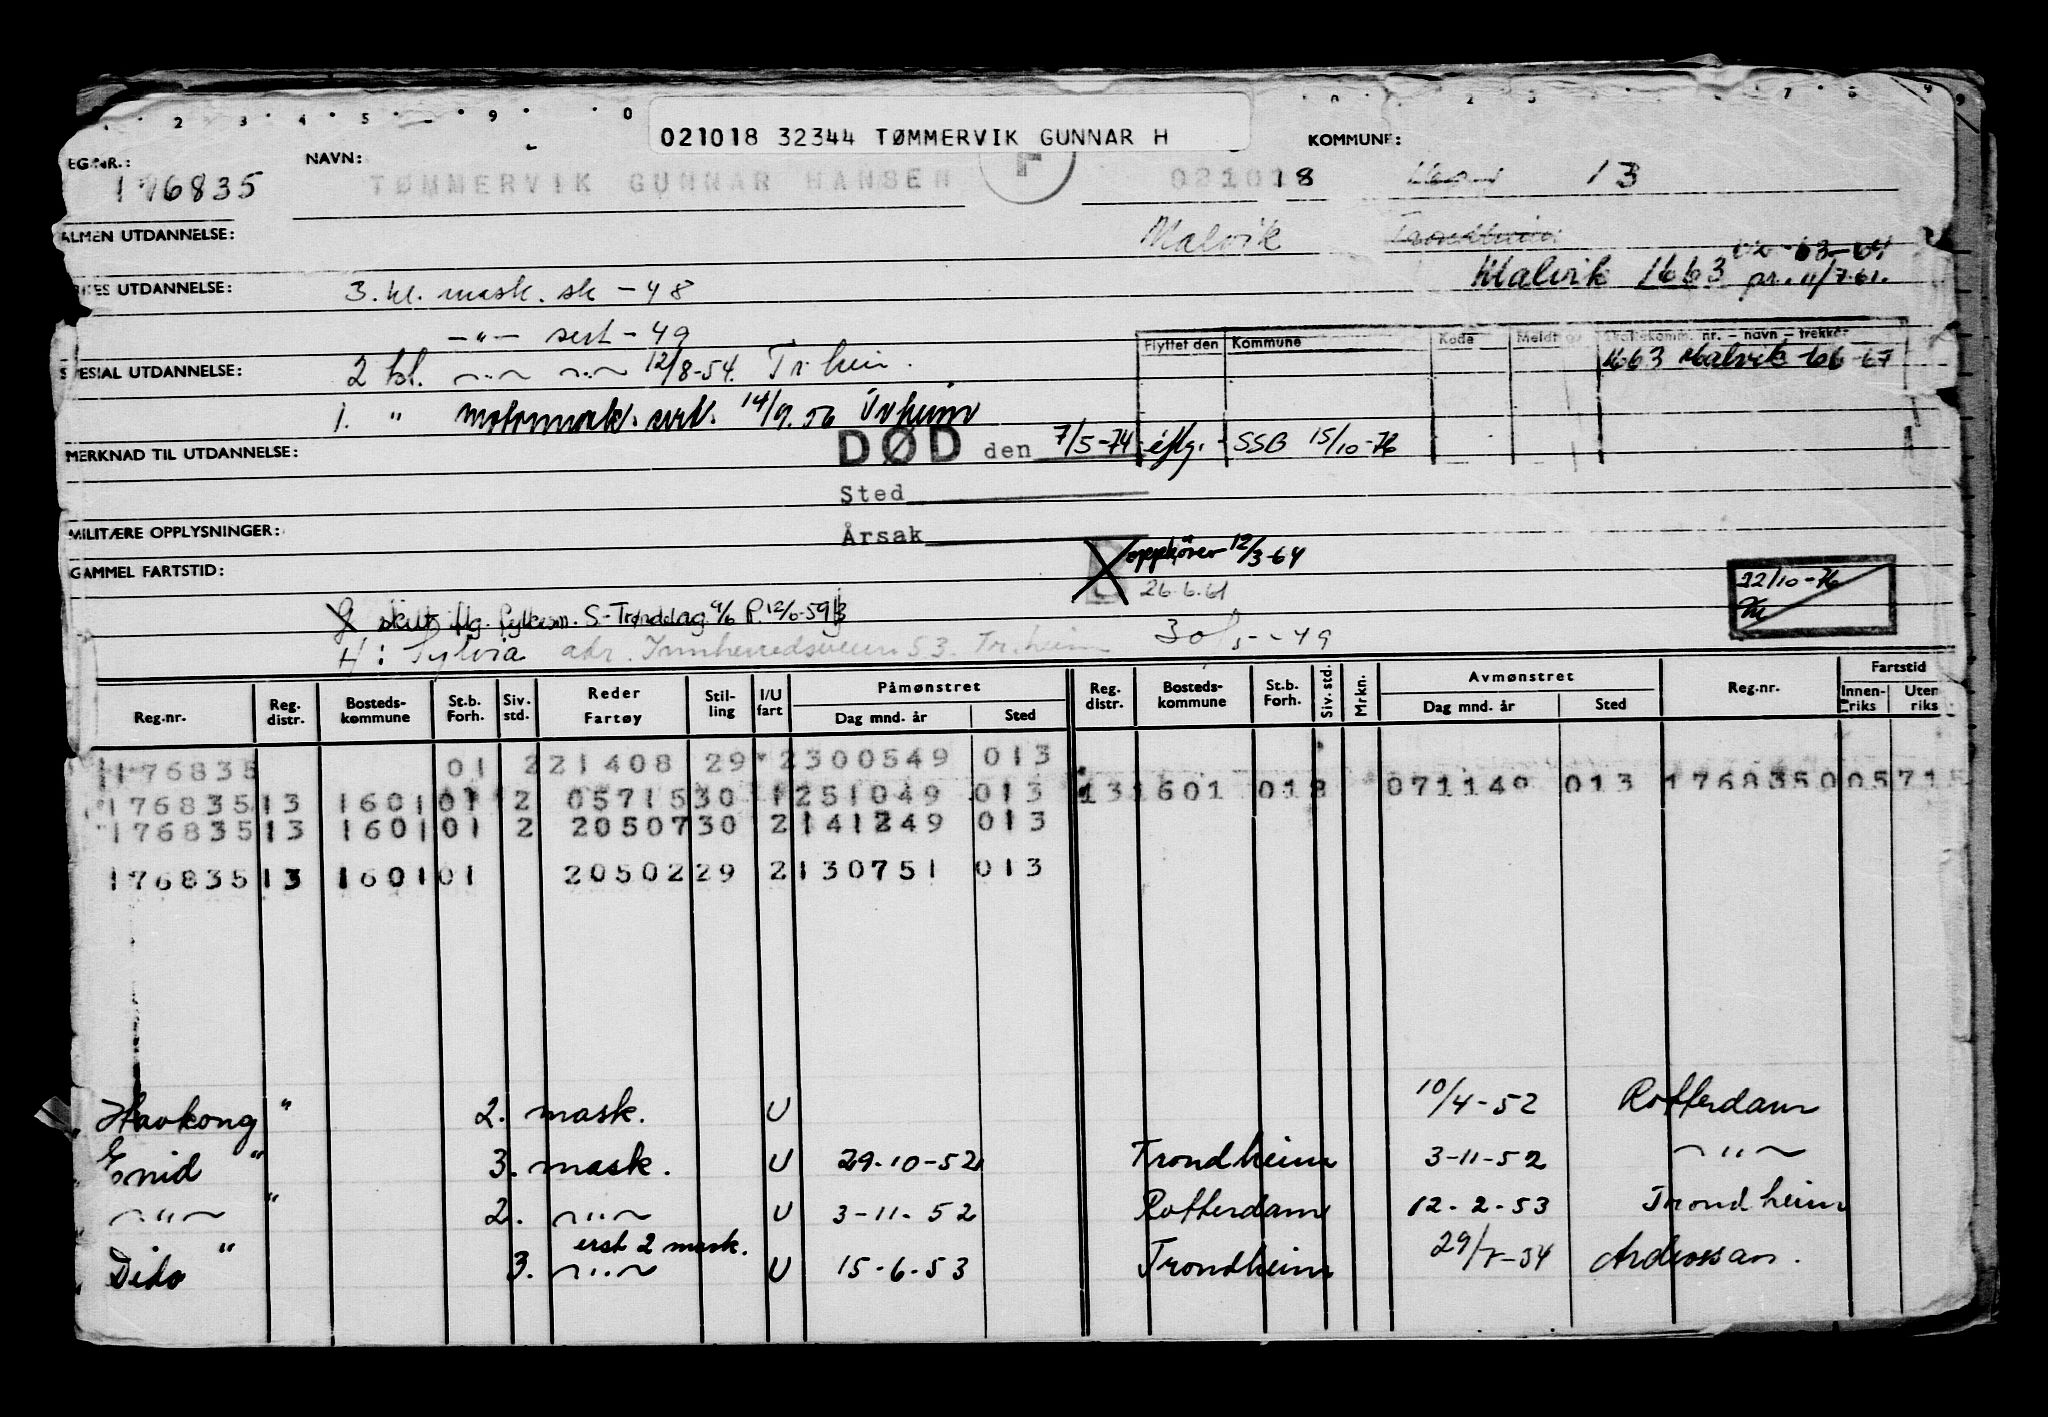 021018 32344 TØMMERVIK GUNNAR H
NAVN: KOMMUNE:
176835 TØMMERVIK GUNNAR HANSEN 021018 13
ALMEN UTDANNELSE: Malvik Trondheim
Malvik 1663 pr. 11/7-61.
UTDANNELSE: 3. kl. mask. sk - 48
-"- sert - 49
Flyttet den Kommune Kode Meldt Skattekomm. nr. - navn - trekkår
SPESIAL UTDANNELSE: 2 kl. -"- -"- 12/8-54. Tr.heim. 1663 Malvik 66-67
1. " motormask. sert. 14/9.56
MERKNAD TIL UTDANNELSE: DØD den 7/5-74 iflg. SSB 15/10-76
Sted
MILITÆRE OPPLYSNINGER: Årsak
GAMMEL FARTSTID: opphører 12/3-64
26.6.61
22/10-76
skilt iflg. fylkesm. S-Trøndelag 9/6 P. 12/6-59
H: Sylvia adr. Innherredsveien 53. Tr.heim 30/5-49
Reg.nr. Reg. distr. Bosteds-kommune St.b. Forh. Siv. std. Reder Fartøy Stil-ling I/U fart Påmønstret Dag mnd. år Sted Reg. distr. Bosteds-kommune St.b. Forh. Siv. std. Mrkn. Avmønstret Dag mnd. år Sted Reg.nr. Fartstid Innen-riks Uten riks
176835 01 2 21408 29 2 300549 013
176835 13 1601 01 2 05715 30 1 251049 013 13 1601 01 071149 013 176835 005715
176835 13 1601 01 2 20507 30 2 141249 013
176835 13 1601 01 20502 29 2 130751 013
Havkong " 2. mask. U 10/4-52 Rotterdam
Enid " 3. mask. U 29-10-52 Trondheim 3-11-52 -"-
-"- " 2. -"- U 3-11-52 Rotterdam 12-2-53 Trondheim
erst 2 mask.
Dido " 3. -"- U 15-6-53 Trondheim Ardrossan.